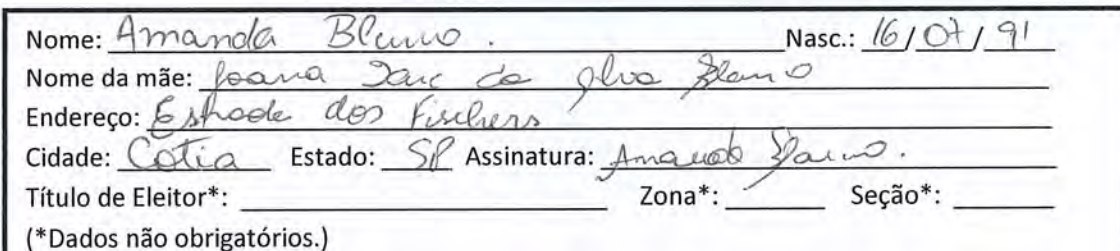 Nome: Amanda Nasc.: 16/07/91
Nome da mãe: Joana da
Endereço: Estrada dos Fischers
Cidade: Cotia Estado: SP Assinatura: Amanda
Título de Eleitor*: Zona*: Seção*:
(*Dados não obrigatórios.)